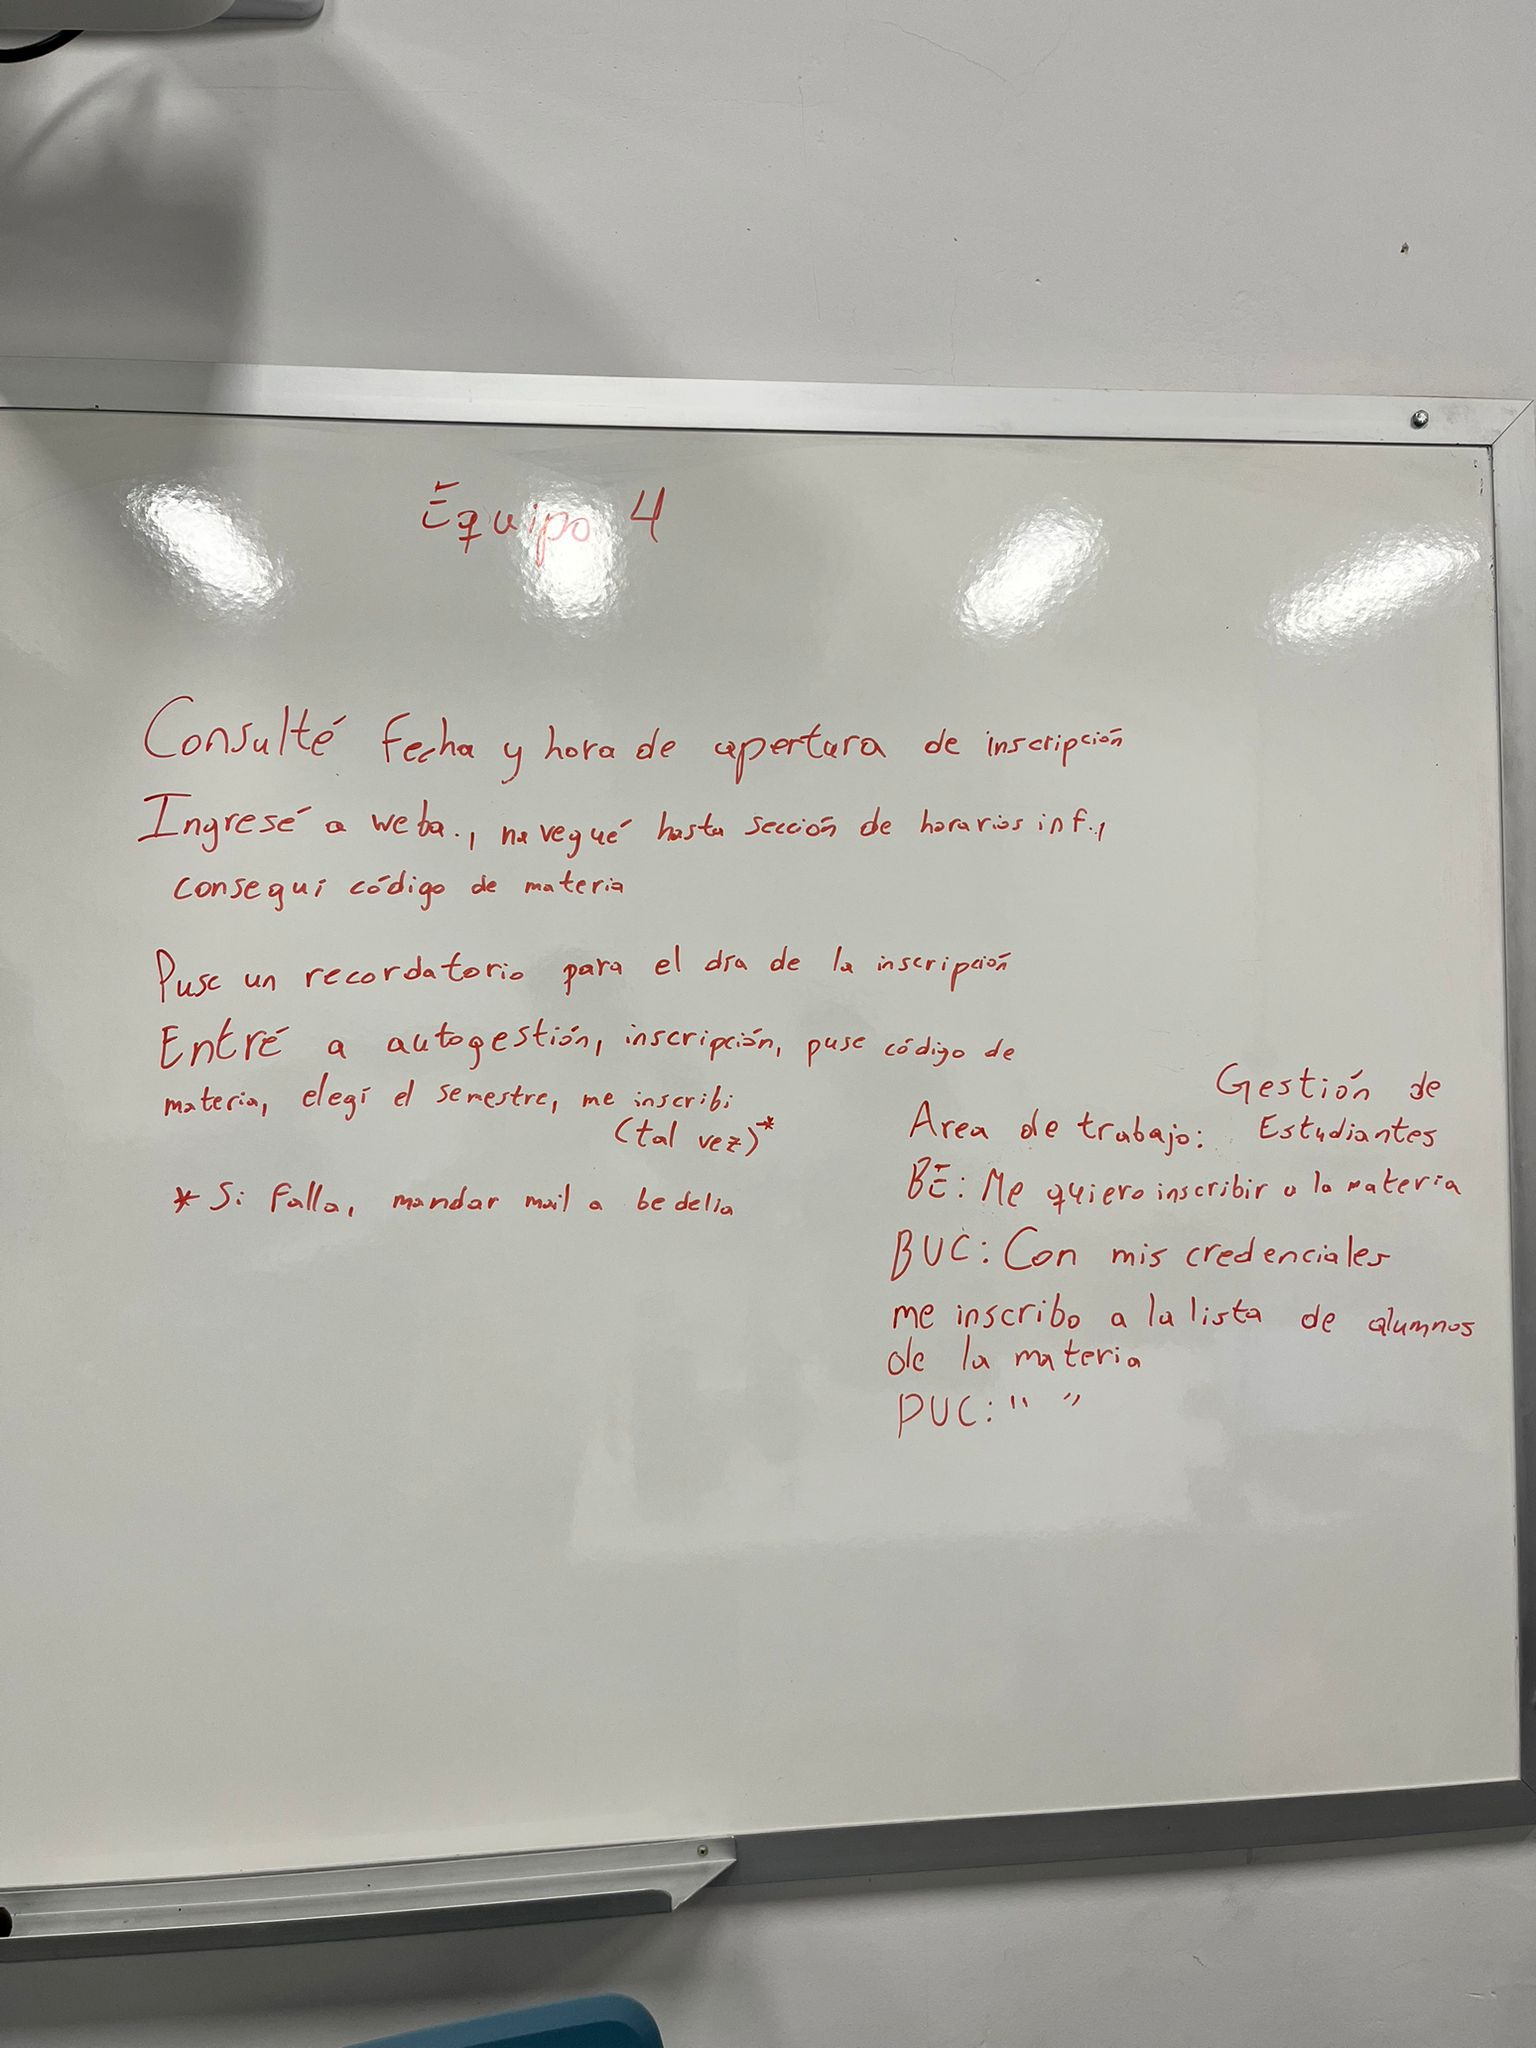 Equipo 4
Consulté fecha y hora de apertura de inscripción
Ingresé a weba., navegué hasta sección de horarios inf.,
conseguí código de materia
Puse un recordatorio para el día de la inscripción
Entré a autogestión, inscripción, puse código de
materia, elegí el semestre, me inscribí
(tal vez)*
* Si falla, mandar mail a bedelía
Gestión de
Area de trabajo: Estudiantes
BE: Me quiero inscribir a la materia
BUC: Con mis credenciales
me inscribo a la lista de alumnos
de la materia
PUC: " "